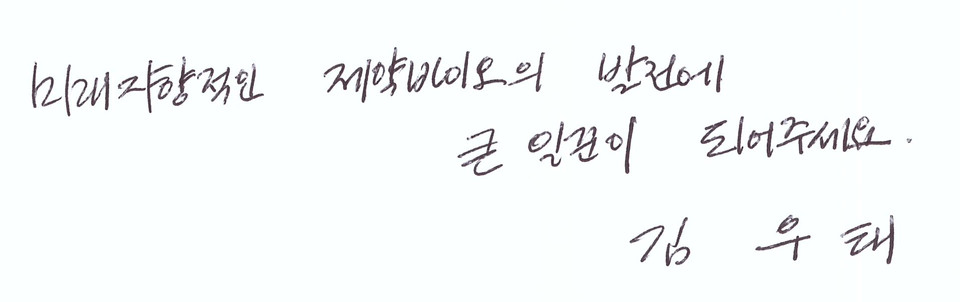 미래지향적인 제약바이오의 발전에
큰 일꾼이 되어주세요.
김 우 태